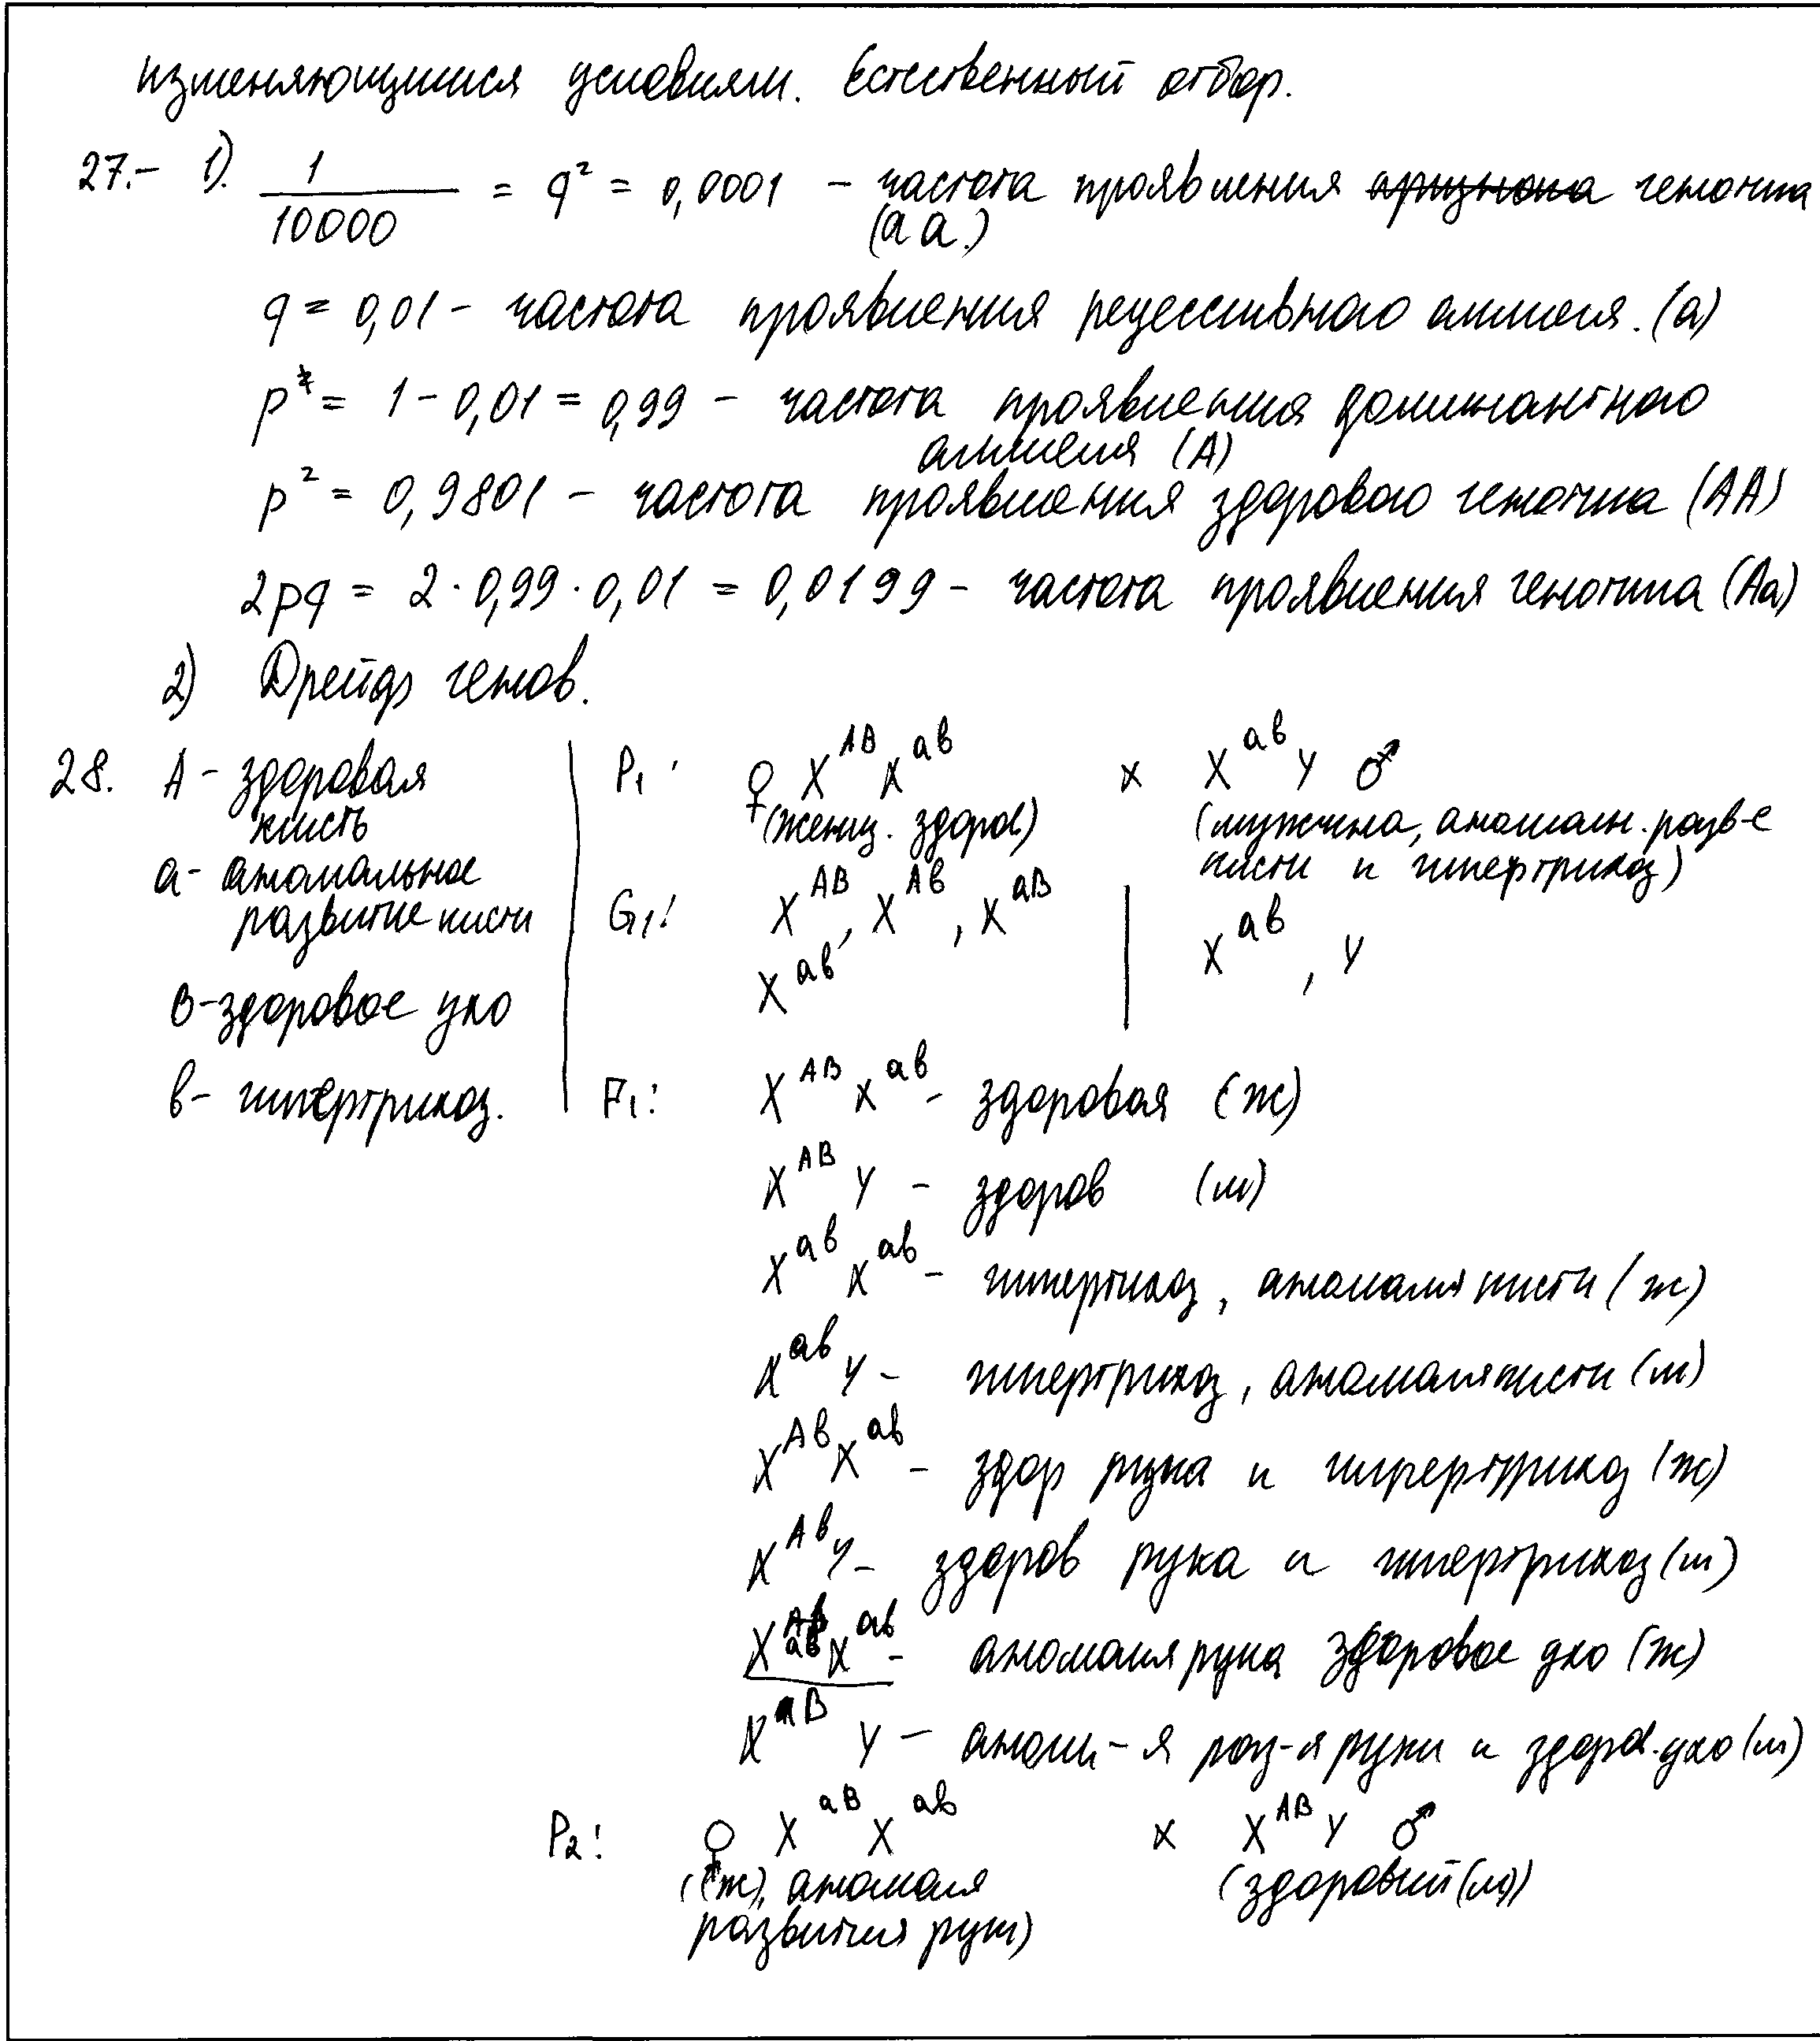 изменяющимися условиям. Естественный отбор.
27.- 1). 1/10000 = q² = 0,0001 - частота проявления генотипа
(аа.)
q = 0,01 - частота проявления рецессивного аллеля. (а)
p = 1 - 0,01 = 0,99 - частота проявления доминантного
аллеля (А)
p² = 0,9801 - частота проявления здорового генотипа (АА)
2pq = 2·0,99·0,01 = 0,0199 - частота проявления генотипа (Аа)
2) Дрейф генов.
28. А - здоровая
кисть
а - аномальное
развитие кисти
В - здоровое ухо
в - гипертрихоз.
P₁: ♀ X^АВ X^ав x X^ав Y ♂
(женщ. здоров) (мужчина, аномальн. разв-е
кисти и гипертрихоз)
G₁: X^АВ, X^Ав, X^аВ | X^ав, Y
X^ав
F₁: X^АВ X^ав - здоровая (ж)
X^АВ Y - здоров (м)
X^ав X^ав - гипертихоз, аномалия кисти (ж)
X^ав Y - гипертрихоз, аномалия кисти (м)
X^Ав X^ав - здор рука и гипертрихоз (ж)
X^Ав Y - здоров рука и гипертрихоз (м)
X^аВ X^ав - аномалия рука здоровое ухо (ж)
X^аВ Y - аном-я раз-я руки и здоров. ухо (м)
P₂: ♀ X^аВ X^ав x X^АВ Y ♂
((ж), аномалия (здоровый (м))
развития руки)